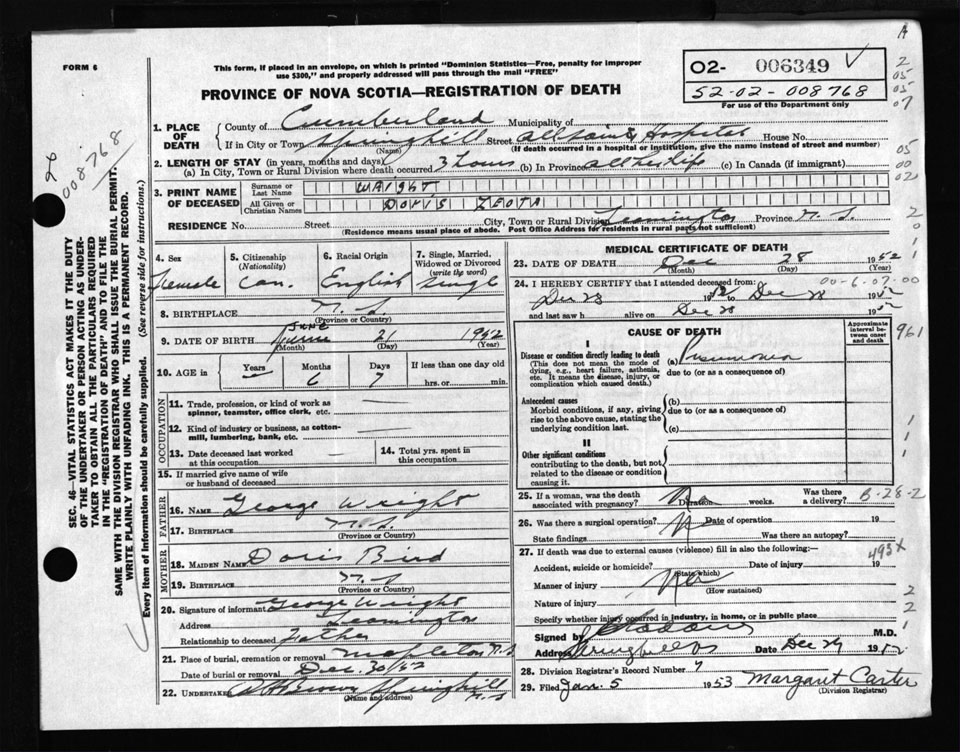 FORM 6
This form, if placed in an envelope, on which is printed "Dominion Statistics—Free, penalty for improper
use $300," and properly addressed will pass through the mail "FREE"
PROVINCE OF NOVA SCOTIA—REGISTRATION OF DEATH
O2- 006349
52-02-008768
For use of the Department only
008768
SEC. 46—VITAL STATISTICS ACT MAKES IT THE DUTY
OF THE UNDERTAKER OR PERSON ACTING AS UNDER-
TAKER TO OBTAIN ALL THE PARTICULARS REQUIRED
IN THE "REGISTRATION OF DEATH" AND TO FILE THE
SAME WITH THE DIVISION REGISTRAR WHO SHALL ISSUE THE BURIAL PERMIT.
WRITE PLAINLY WITH UNFADING INK. THIS IS A PERMANENT RECORD.
Every item of information should be carefully supplied. (See reverse side for instructions.)
1. PLACE OF DEATH
County of Cumberland Municipality of
If in City or Town Springhill Street All Saints Hospital House No.
(Name) (If death occurred in a hospital or institution, give the name instead of street and number)
2. LENGTH OF STAY (in years, months and days)
(a) In City, Town or Rural Division where death occurred 3 hours (b) In Province all her life (c) In Canada (if immigrant)
3. PRINT NAME OF DECEASED
Surname or Last Name WRIGHT
All Given or Christian Names DORIS LEOTA
RESIDENCE No. Street City, Town or Rural Division Leamington Province N. S.
(Residence means usual place of abode. Post Office Address for residents in rural parts not sufficient)
4. Sex Female
5. Citizenship (Nationality) Can.
6. Racial Origin English
7. Single, Married, Widowed or Divorced (write the word) Single
8. BIRTHPLACE N. S
(Province or Country)
9. DATE OF BIRTH JUNE 21 1952
(Month) (Day) (Year)
10. AGE in Years Months 6 Days 7 If less than one day old hrs. or min.
OCCUPATION
11. Trade, profession, or kind of work as
spinner, teamster, office clerk, etc.
12. Kind of industry or business, as cotton-
mill, lumbering, bank, etc.
13. Date deceased last worked
at this occupation
14. Total yrs. spent in
this occupation
15. If married give name of wife
or husband of deceased
FATHER
16. NAME George Wright
17. BIRTHPLACE N. S
(Province or Country)
MOTHER
18. MAIDEN NAME Doris Bird
19. BIRTHPLACE N. S
(Province or Country)
20. Signature of informant George Wright
Address Leamington
Relationship to deceased Father
21. Place of burial, cremation or removal Mapleton N.S
Date of burial or removal Dec. 30/52
22. Undertaker Brown Springhill N.S
(Name and address)
MEDICAL CERTIFICATE OF DEATH
23. DATE OF DEATH Dec 28 1952
(Month) (Day) (Year)
24. I HEREBY CERTIFY that I attended deceased from: 00-6-07-00
Dec 28 1952 Dec 28 1952
and last saw h alive on Dec 28 1952
CAUSE OF DEATH
Approximate interval between onset and death
I
Disease or condition directly leading to death
(This does not mean the mode of
dying, e.g., heart failure, asthenia,
etc. It means the disease, injury, or
complication which caused death.)
(a) Pneumonia
due to (or as a consequence of)
Antecedent causes
Morbid conditions, if any, giving
rise to the above cause, stating the
underlying condition last.
(b)
due to (or as a consequence of)
(c)
II
Other significant conditions
contributing to the death, but not
related to the disease or condition
causing it.
25. If a woman, was the death
associated with pregnancy? No Duration weeks. Was there
a delivery? B-28-2
26. Was there a surgical operation? Date of operation 19
State findings Was there an autopsy?
27. If death was due to external causes (violence) fill in also the following:— 493X
Accident, suicide or homicide? Date of injury 19
(State which)
Manner of injury
(How sustained)
Nature of injury
Specify whether injury occurred in industry, in home, or in public place
Signed by M.D.
Address Springhill NS Date Dec 29 1952
28. Division Registrar's Record Number 7
29. Filed Jan. 5 1953 Margaret Carter
(Division Registrar)
A
2
05
07
05
00
02
2
0
1
961
1
1
1
2
2
1